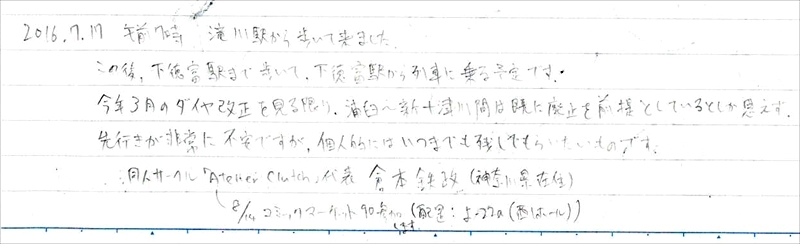 2016.7.17 午前7時 滝川駅から歩いて来ました。
この後、下徳富駅まで歩いて、下徳富駅から列車に乗る予定です。
今年3月のダイヤ改正を見る限り、浦臼〜新十津川間は既に廃止を前提としているとしか思えず、
先行きが非常に不安ですが、個人的にはいつまでも残してもらいたいものです。
同人サークル「Atelier Clutch」代表 倉本鉄政(神奈川県在住)
8/14 コミックマーケット90参加します。(配置:よ-27a(西1ホール))